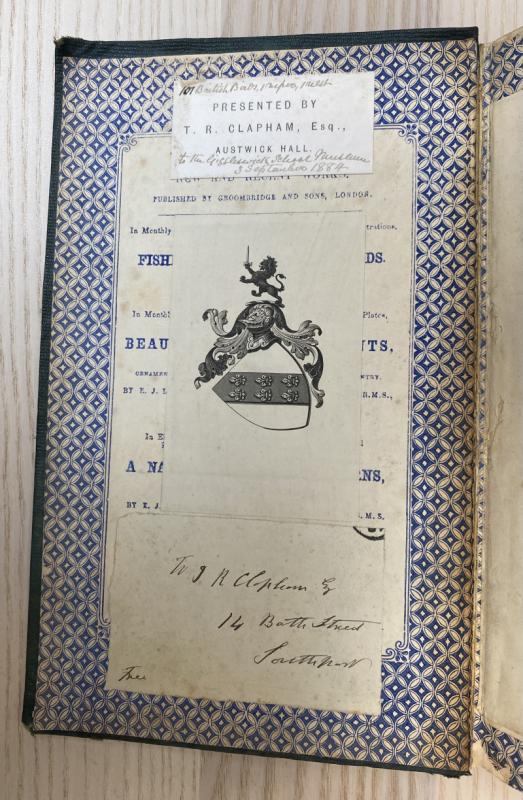 PRESENTED BY
T. R. CLAPHAM, Esq.,
AUSTWICK HALL.
to the Giggleswick School Museum
3 September 1884
NEW AND RECENT WORKS,
PUBLISHED BY GROOMBRIDGE AND SONS, LONDON.
In Monthly trations,
FISH DS.
In Month Plates,
BEAU NTS,
ORNAMEN NTRY.
BY E. J. L R.M.S.,
In E
A NA RNS,
BY E. J. .M.S.
T. R Clapham Esq
14 Bath Street
Southport
Free